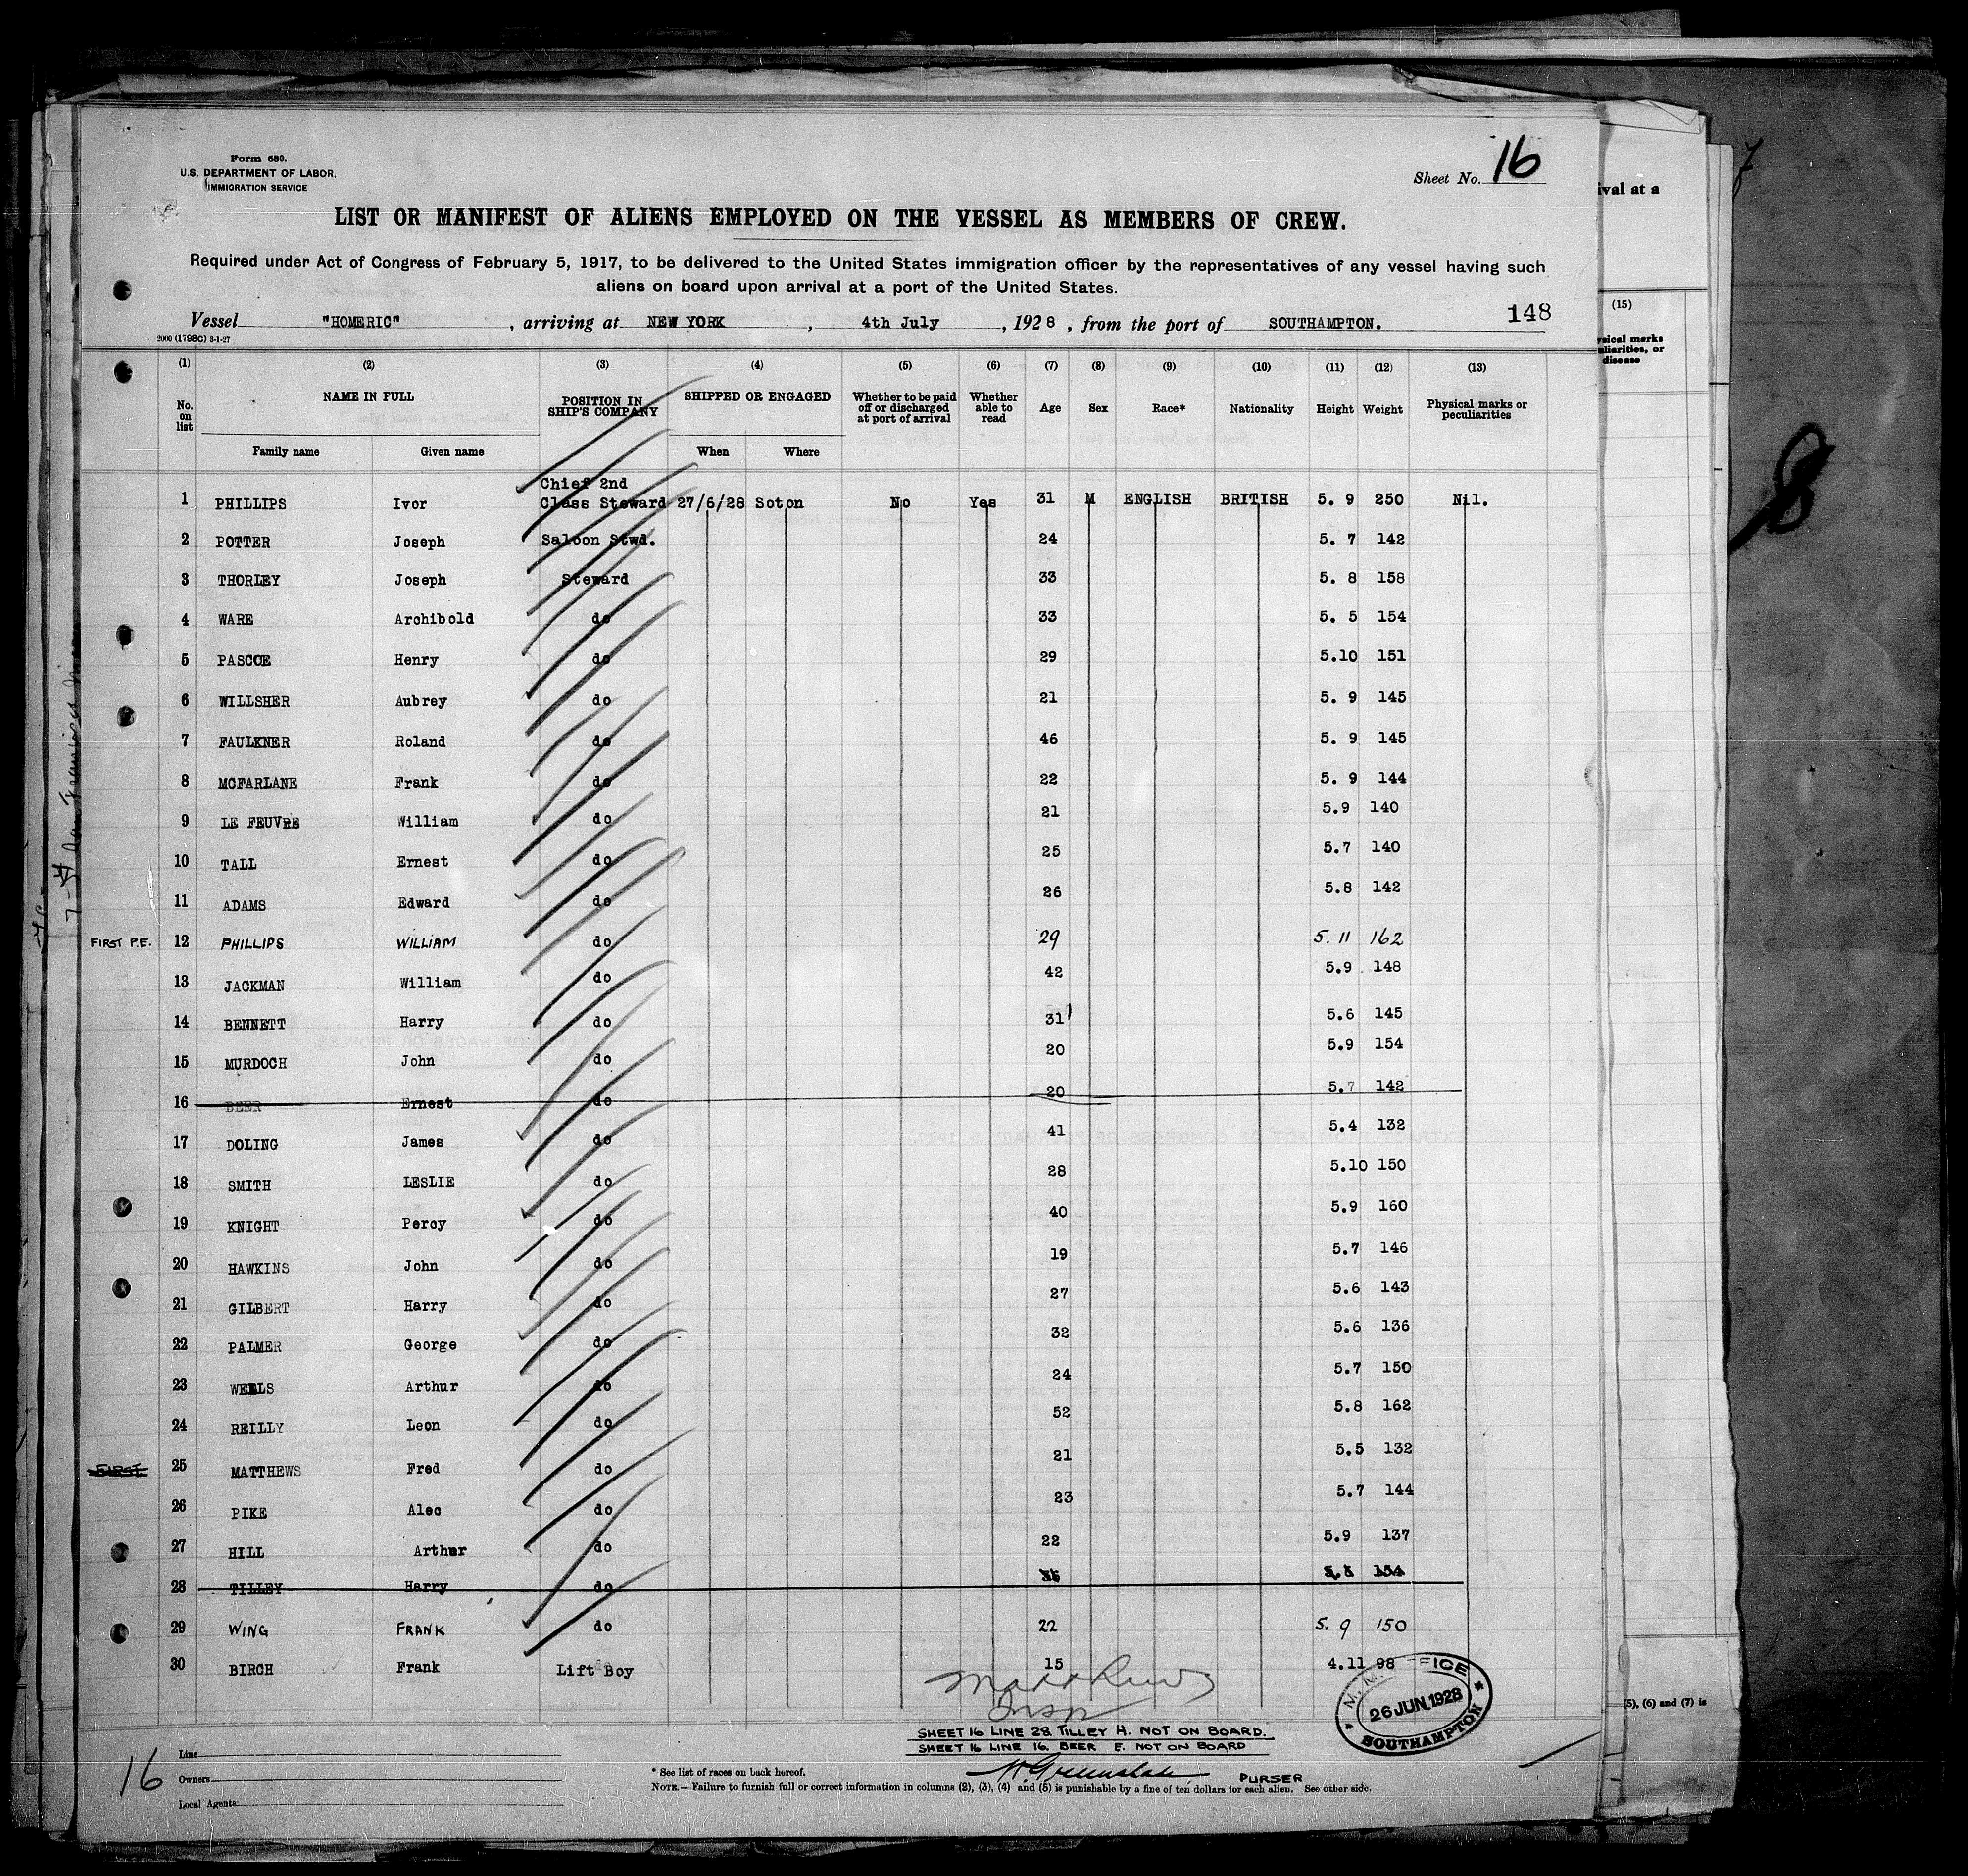 Form 680.
U.S. DEPARTMENT OF LABOR.
IMMIGRATION SERVICE
Sheet No. 16
LIST OR MANIFEST OF ALIENS EMPLOYED ON THE VESSEL AS MEMBERS OF CREW.
Required under Act of Congress of February 5, 1917, to be delivered to the United States immigration officer by the representatives of any vessel having such
aliens on board upon arrival at a port of the United States.
Vessel "HOMERIC", arriving at NEW YORK, 4th July, 1928, from the port of SOUTHAMPTON. 148
2000 (1798C) 3-1-27
(1) (2) (3) (4) (5) (6) (7) (8) (9) (10) (11) (12) (13)
No. on list NAME IN FULL POSITION IN SHIP'S COMPANY SHIPPED OR ENGAGED Whether to be paid off or discharged at port of arrival Whether able to read Age Sex Race* Nationality Height Weight Physical marks or peculiarities
Family name Given name When Where
1 PHILLIPS Ivor Chief 2nd Class Steward 27/6/28 Soton No Yes 31 M ENGLISH BRITISH 5. 9 250 Nil.
2 POTTER Joseph Saloon Stwd. 24 5. 7 142
3 THORLEY Joseph Steward 33 5. 8 158
4 WARE Archibold do 33 5. 5 154
5 PASCOE Henry do 29 5.10 151
6 WILLSHER Aubrey do 21 5. 9 145
7 FAULKNER Roland do 46 5. 9 145
8 MCFARLANE Frank do 22 5. 9 144
9 LE FEUVRE William do 21 5.9 140
10 TALL Ernest do 25 5.7 140
11 ADAMS Edward do 26 5.8 142
FIRST P.E. 12 PHILLIPS WILLIAM do 29 5.11 162
13 JACKMAN William do 42 5.9 148
14 BENNETT Harry do 31 5.6 145
15 MURDOCH John do 20 5.9 154
16 BEER Ernest do 20 5.7 142
17 DOLING James do 41 5.4 132
18 SMITH LESLIE do 28 5.10 150
19 KNIGHT Percy do 40 5.9 160
20 HAWKINS John do 19 5.7 146
21 GILBERT Harry do 27 5.6 143
22 PALMER George do 32 5.6 136
23 WELLS Arthur do 24 5.7 150
24 REILLY Leon do 52 5.8 162
FIRST 25 MATTHEWS Fred do 21 5.5 132
26 PIKE Alec do 23 5.7 144
27 HILL Arthur do 22 5.9 137
28 TILLEY Harry do 154
29 WING FRANK do 22 5. 9 150
30 BIRCH Frank Lift Boy 15 4.11 98
Matthews
Insp
26 JUN 1928
SOUTHAMPTON
SHEET 16 LINE 28 TILLEY H. NOT ON BOARD.
SHEET 16 LINE 16. BEER E. NOT ON BOARD
PURSER
16
Line
Owners
Local Agents
* See list of races on back hereof.
NOTE.—Failure to furnish full or correct information in columns (2), (3), (4) and (5) is punishable by a fine of ten dollars for each alien. See other side.
ival at a
(15)
disease
(5), (6) and (7) is